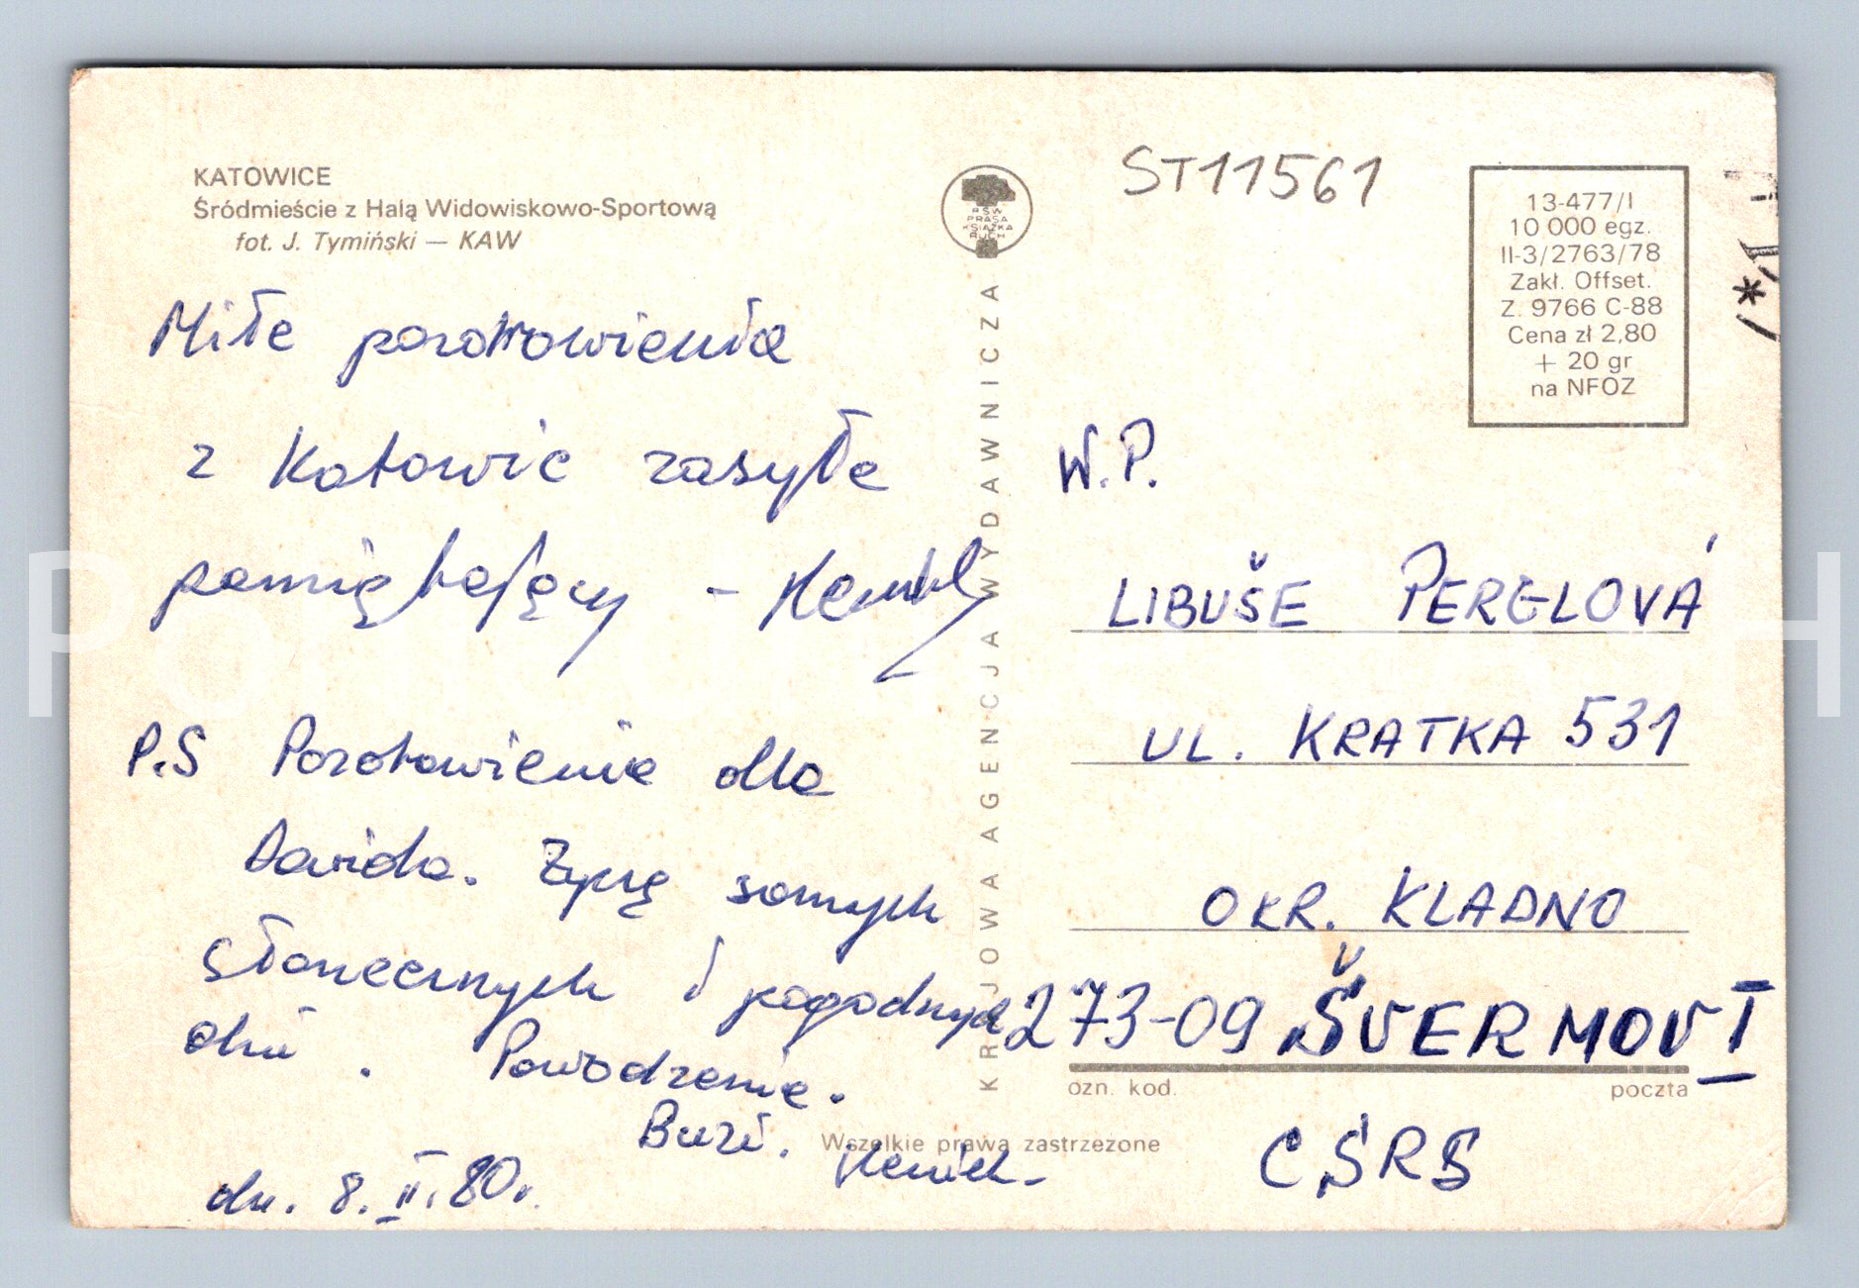 KATOWICE
Śródmieście z Halą Widowiskowo-Sportową
fot. J. Tymiński — KAW
Miłe pozdrowienia
z Katowic zasyła
pamiętający - Heniek
P.S Pozdrowienia dla
Davida. Życzę samych
słonecznych i pogodnych
dni. Powodzenia.
Buzi. Heniek
dn. 8.II.80.
PSW
PRASA
KSIĄŻKA
RUCH
KRAJOWA AGENCJA WYDAWNICZA
ST11561
13-477/I
10 000 egz.
II-3/2763/78
Zakł. Offset.
Z. 9766 C-88
Cena zł 2,80
+ 20 gr
na NFOZ
W.P.
LIBUŠE PERGLOVÁ
UL. KRATKA 531
OKR. KLADNO
273-09 ŠVERMOV I
ozn. kod. poczta
CSRS
Wszelkie prawa zastrzeżone